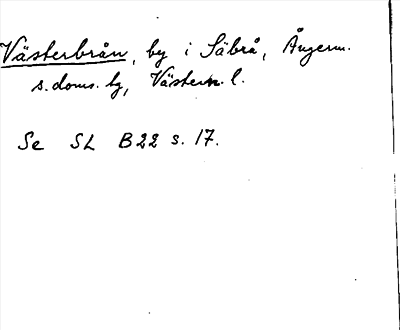 Västerbrån, by i Säbrå, Ångerm.
s. doms. hg, Västern. l.
Se SL B22 s. 17.